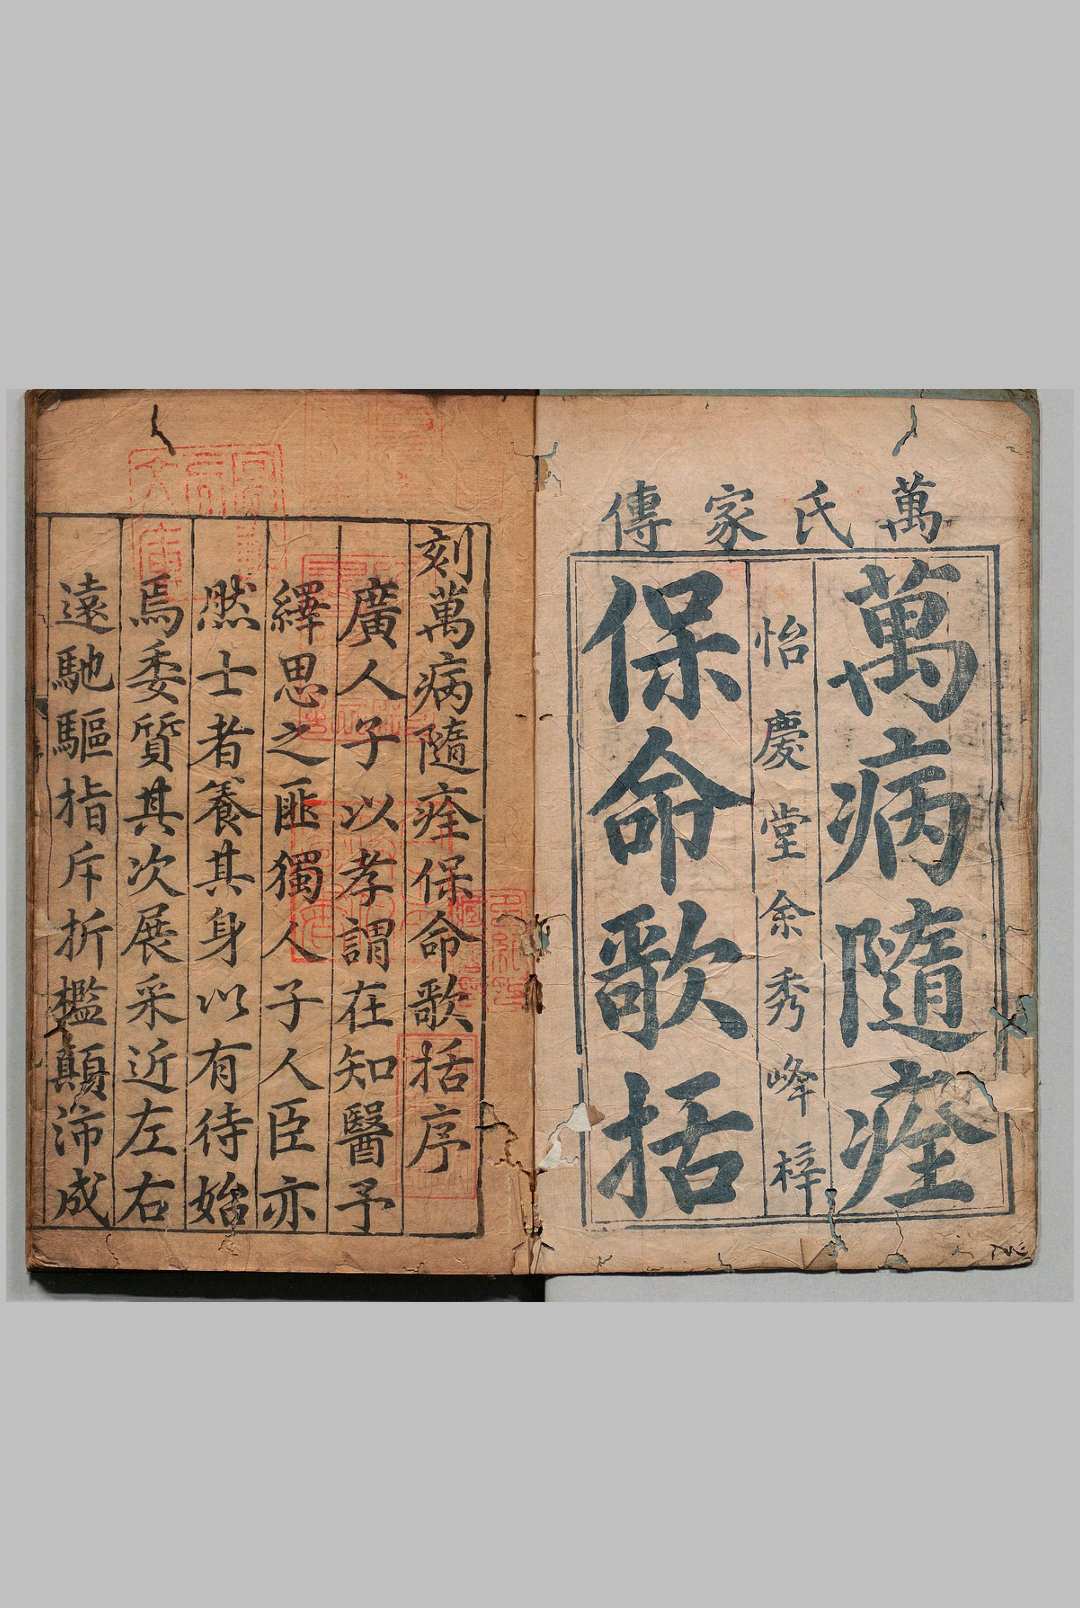 萬氏家傳
萬病隨痊
怡慶堂余秀峰梓
保命歌括
刻萬病隨痊保命歌括序
廣人子以孝謂在知醫予
繹思之匪獨人子人臣亦
然士者養其身以有待始
焉委質其次展采近左右
遠馳驅指斥折檻顛沛成